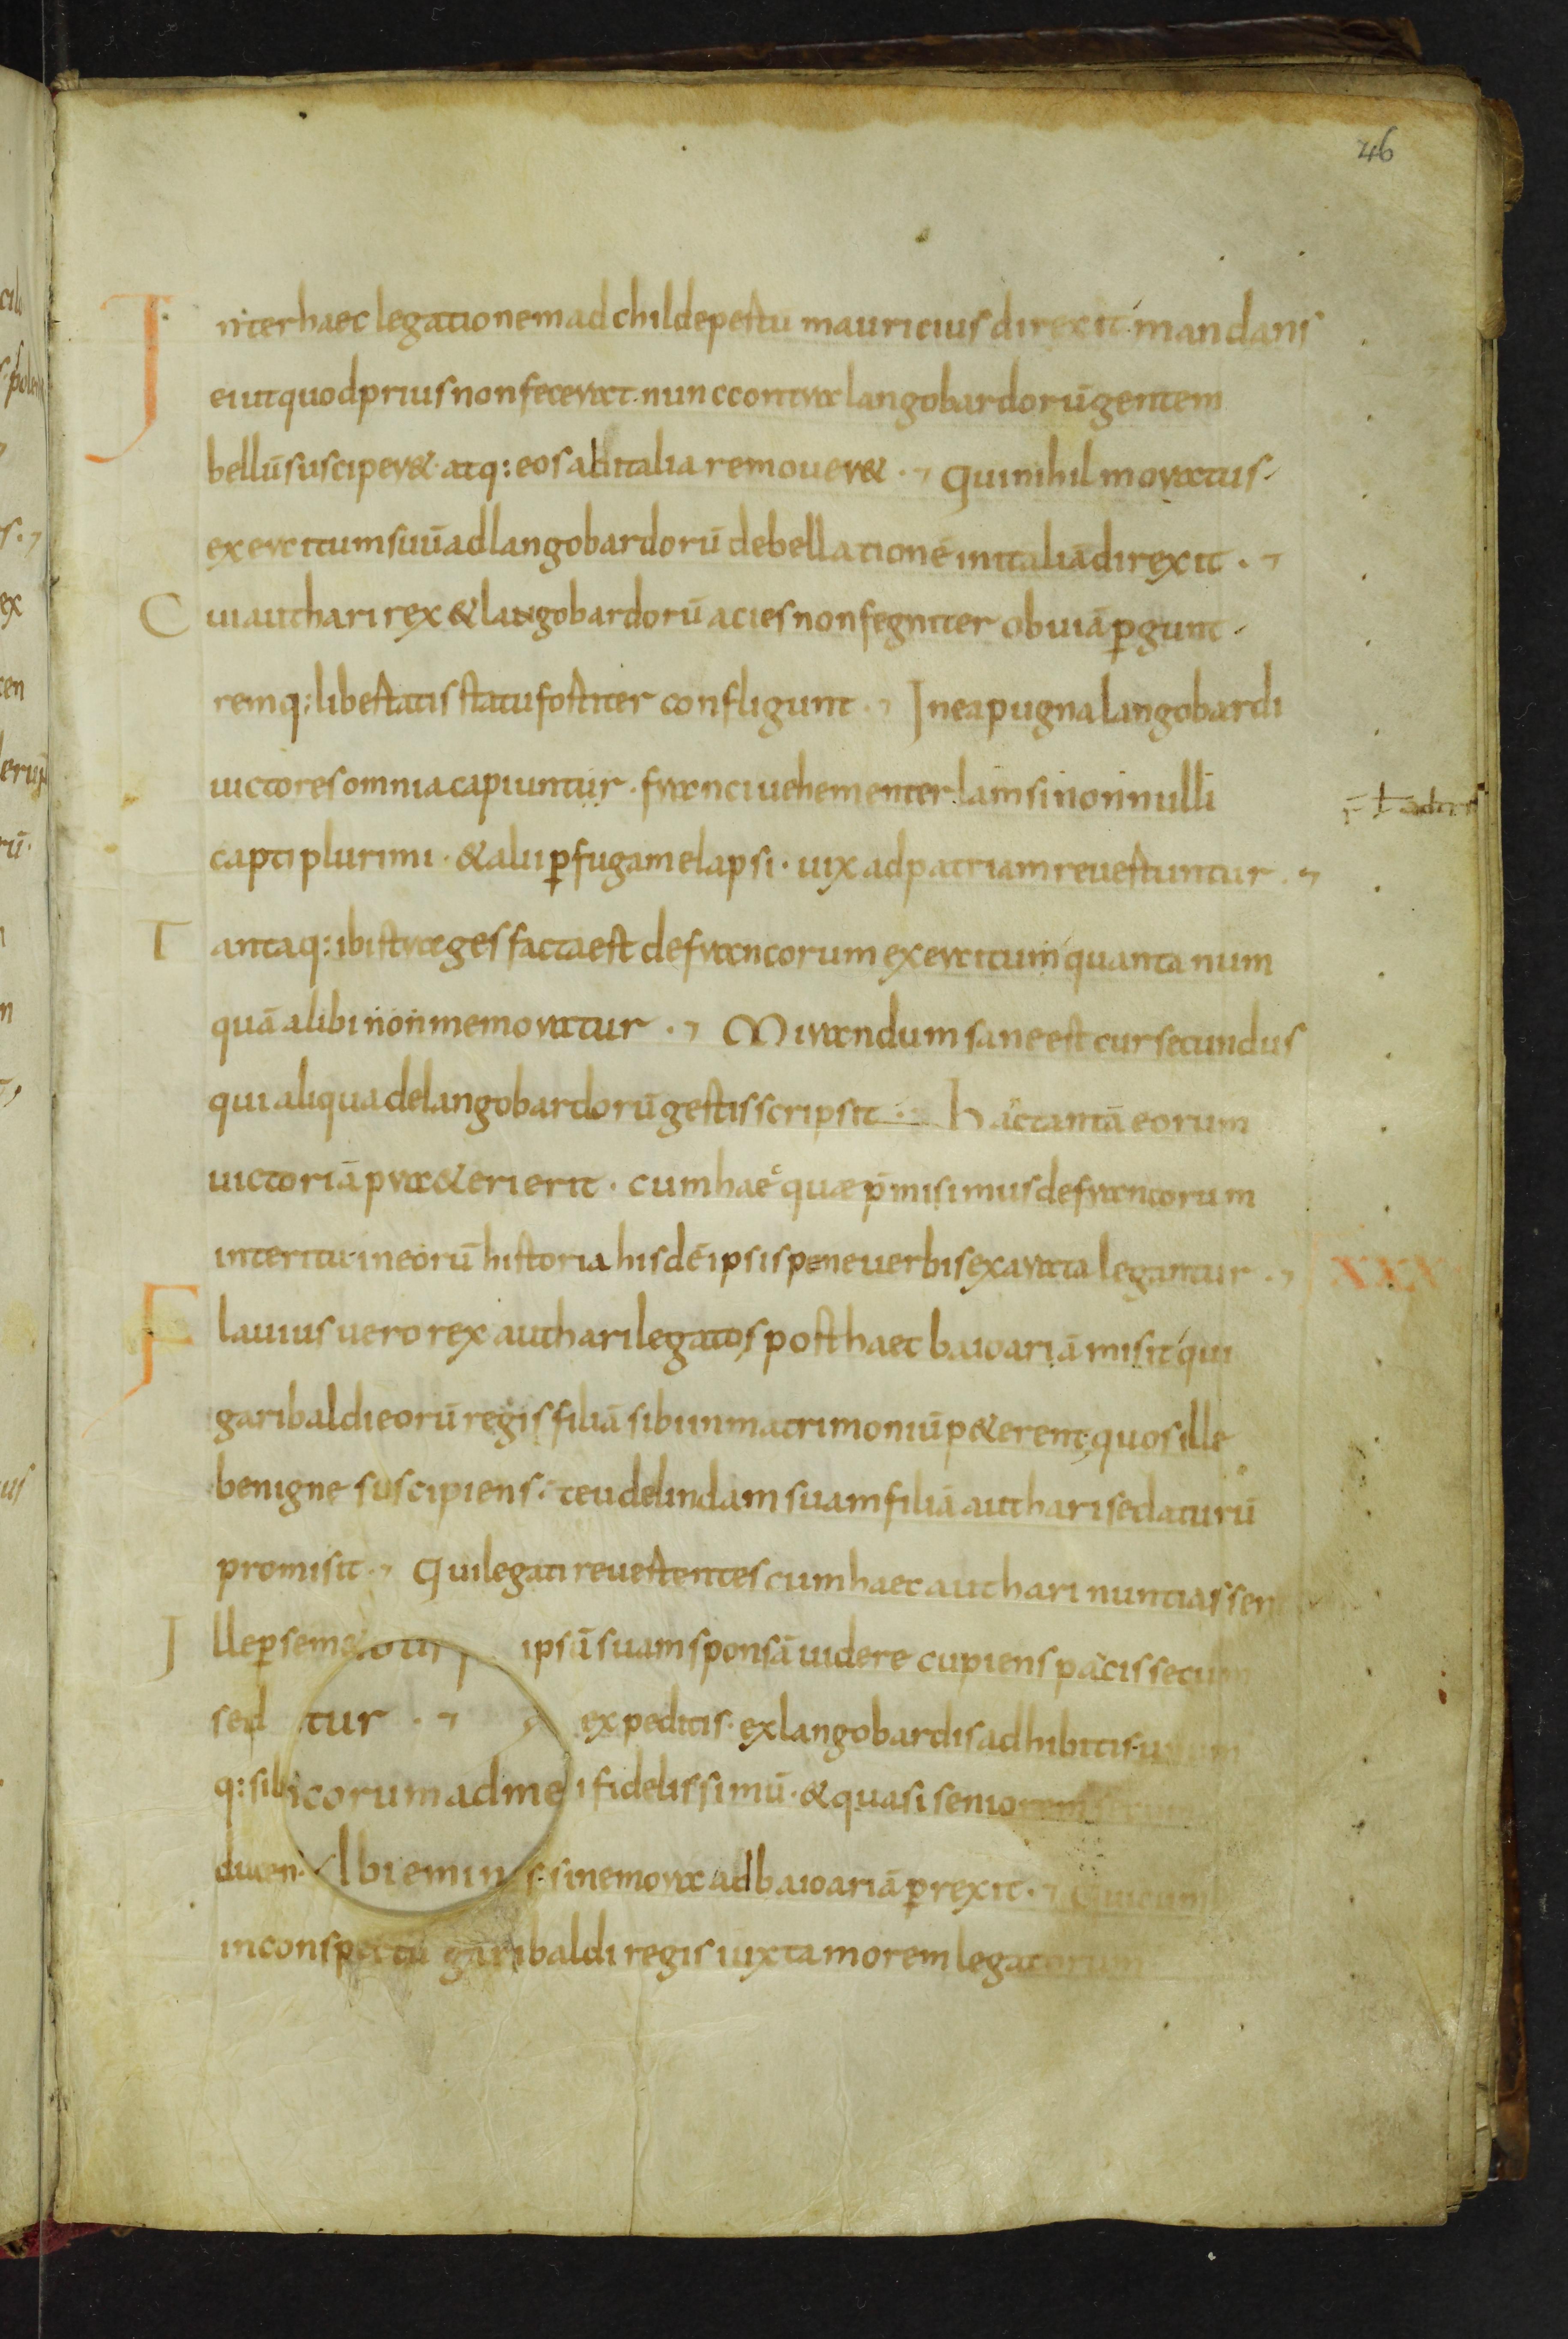 46
Inter haec legationem ad childepertu mauricius direxit mandans
ei ut quod prius non fecerat nunc contra langobardorū gentem
bellū susciperet. atq: eos ab italia remoueret. Qui nihil moratus
exercitum suū ad langobardorū debellationē in italiā direxit.
Cui authari rex & langobardorū acies non segniter obuiā pgunt
remq: libertatis statu fortiter confligunt. In ea pugna langobardi
uictores omnia capiuntur. franci uehementer lainsi nonnulli
capti plurimi. & alii p fugam elapsi. uix ad patriam reuertuntur.
Tantaq: ibi strages facta est de francorum exercitum quanta num
quā alibi non memoratur. Mirandum sane est cur secundus
qui aliqua de langobardorū gestis scripsit. Hāc tantā eorum
uictoriā praeterierit. cum haec quae p̄misimus de francorum
interitu in eorū historia hisdē ipsis pene uerbis exarata legantur.
XXX
Flauius uero rex authari legatos post haec baioariā misit qui
garibaldi eorū regis filiā sibi in matrimoniū peterent quos ille
benigne suscipiens. teudelindam suam filiā authari se daturū
promisit. Qui legati reuertentes cum haec authari nuntiassen
Ille p semet ipsā suam sponsā uidere cupiens paucis secum
sed tur expeditis. ex langobardis adhibitis
q: sibi icorum ad me i fidelissimū. & quasi seniorem
ducen lbi emin s. sine mora ad baioariā prexit. Qui cum
in conspectu garibaldi regis iuxta morem legatorum